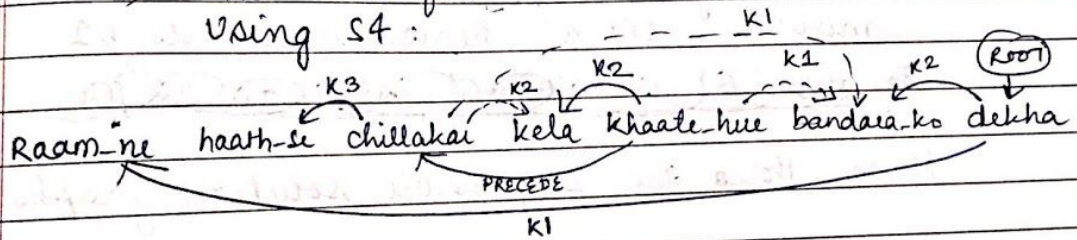 Using S4 :
K1
K3 K2 K2 K1 K2 ROOT
Raam-ne haath-se chillakai kela khaate-hue bandara-ko dekha
PRECEDE
K1